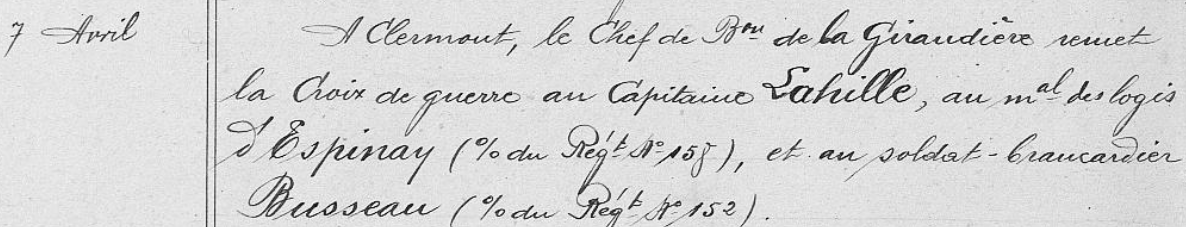 7 Avril
A Clermont, le Chef de Bon de la Giraudière remet
la Croix de guerre au Capitaine Lahille, au mal des logis
d'Espinay (% du Régt No 158), et au soldat-brancardier
Busseau (% du Régt No 152).